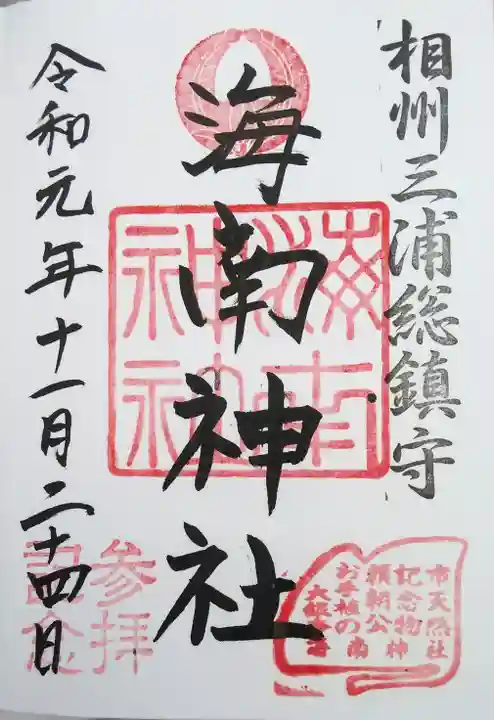 相州三浦総鎮守
海南神社
令和元年十一月二十四日
海南神社
参拝
記念
市天然
記念物
頼朝公
お手植の
大銀杏
海南神社